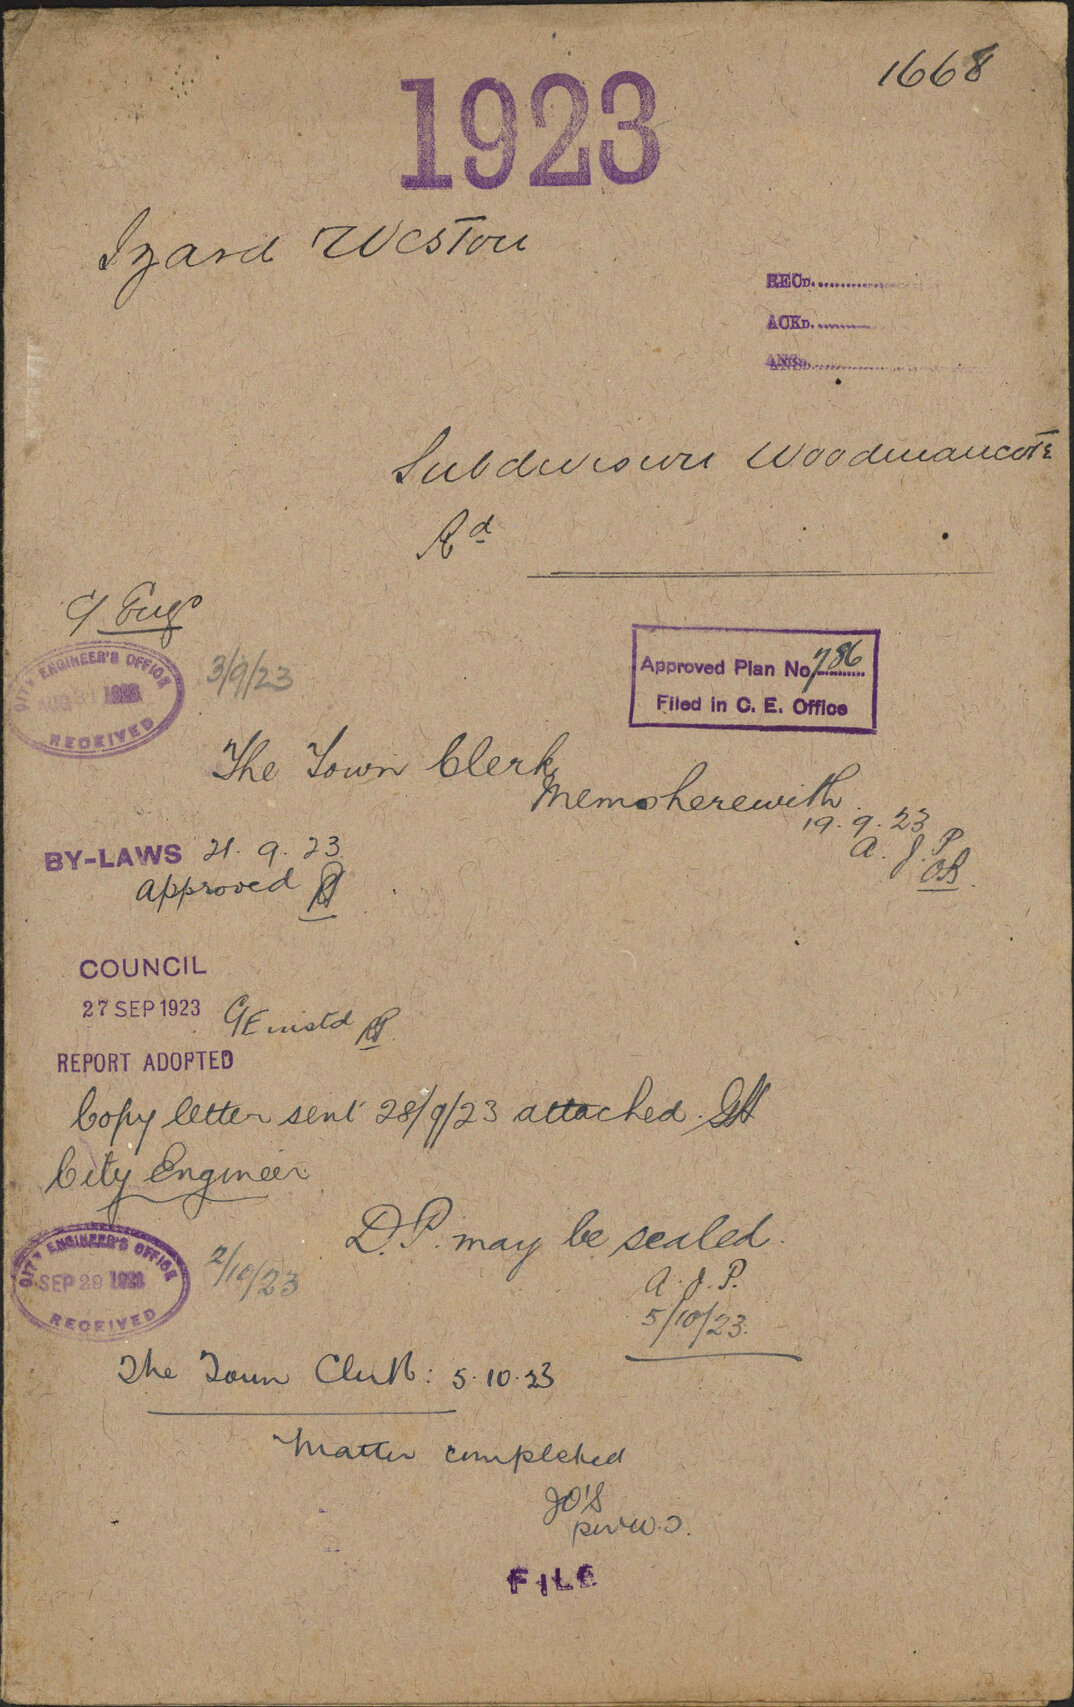 1668
1923
Izard Weston
RECD.
ACKD.
ANSD.
Subdivision Woodmancote
Rd
C/ Engr
CITY ENGINEER'S OFFICE
AUG 31 1923
RECEIVED
3/9/23
Approved Plan No. 786
Filed in C. E. Office
The Town Clerk,
Memo herewith.
19.9.23
A. J. P.
BY-LAWS 21.9.23
approved
COUNCIL
27 SEP 1923
REPORT ADOPTED
Copy letter sent 28/9/23 attached.
City Engineer
CITY ENGINEER'S OFFICE
SEP 29 1923
RECEIVED
2/10/23
D.P. may be sealed.
A. J. P.
5/10/23.
The Town Clerk: 5.10.23
Matter completed
JO'S
per W.J.
FILE